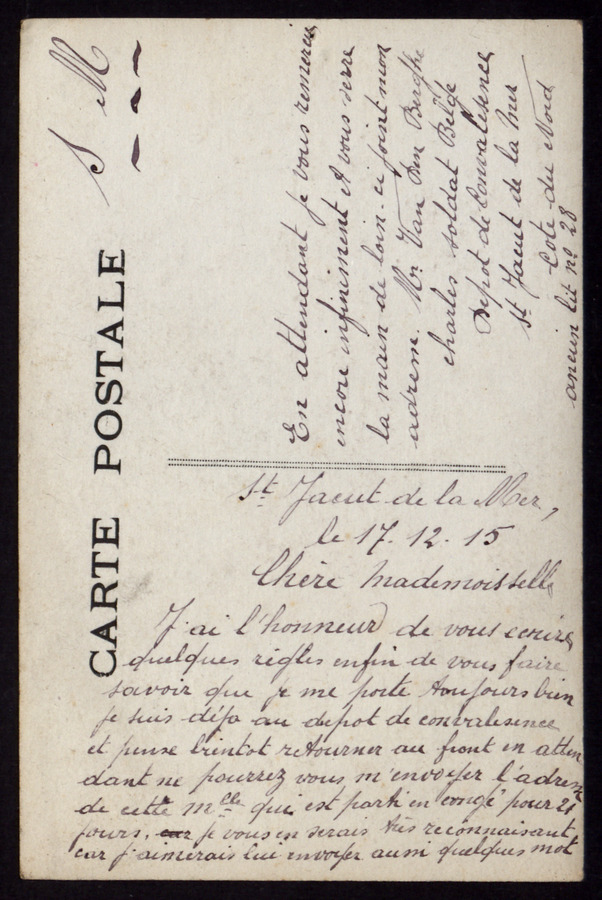 CARTE POSTALE
S M
St Jacut de la Mer,
le 17. 12. 15
Chère Mademoisselle
J'ai l'honneur de vous ecrire
quelques règles enfin de vous faire
savoir que je me porte toujours bien
je suis déja au depot de convalesence
et pense bientot retourner au front en atten
dant ne pourrez vous m'envoyer l'adresse
de cette melle qui est parti en congé pour 21
jours, car je vous en serais très reconnaisant,
car j'aimerais lui envoyer aussi quelques mot
En attendant je vous remercie
encore infiniment et vous serre
la main de loin. ci joint mon
adresse. Mr. Van Den Berghe
charles soldat Belge
Depot de Convalesence
St Jacut de la Mer
Cote du Nord
ancien lit no 28